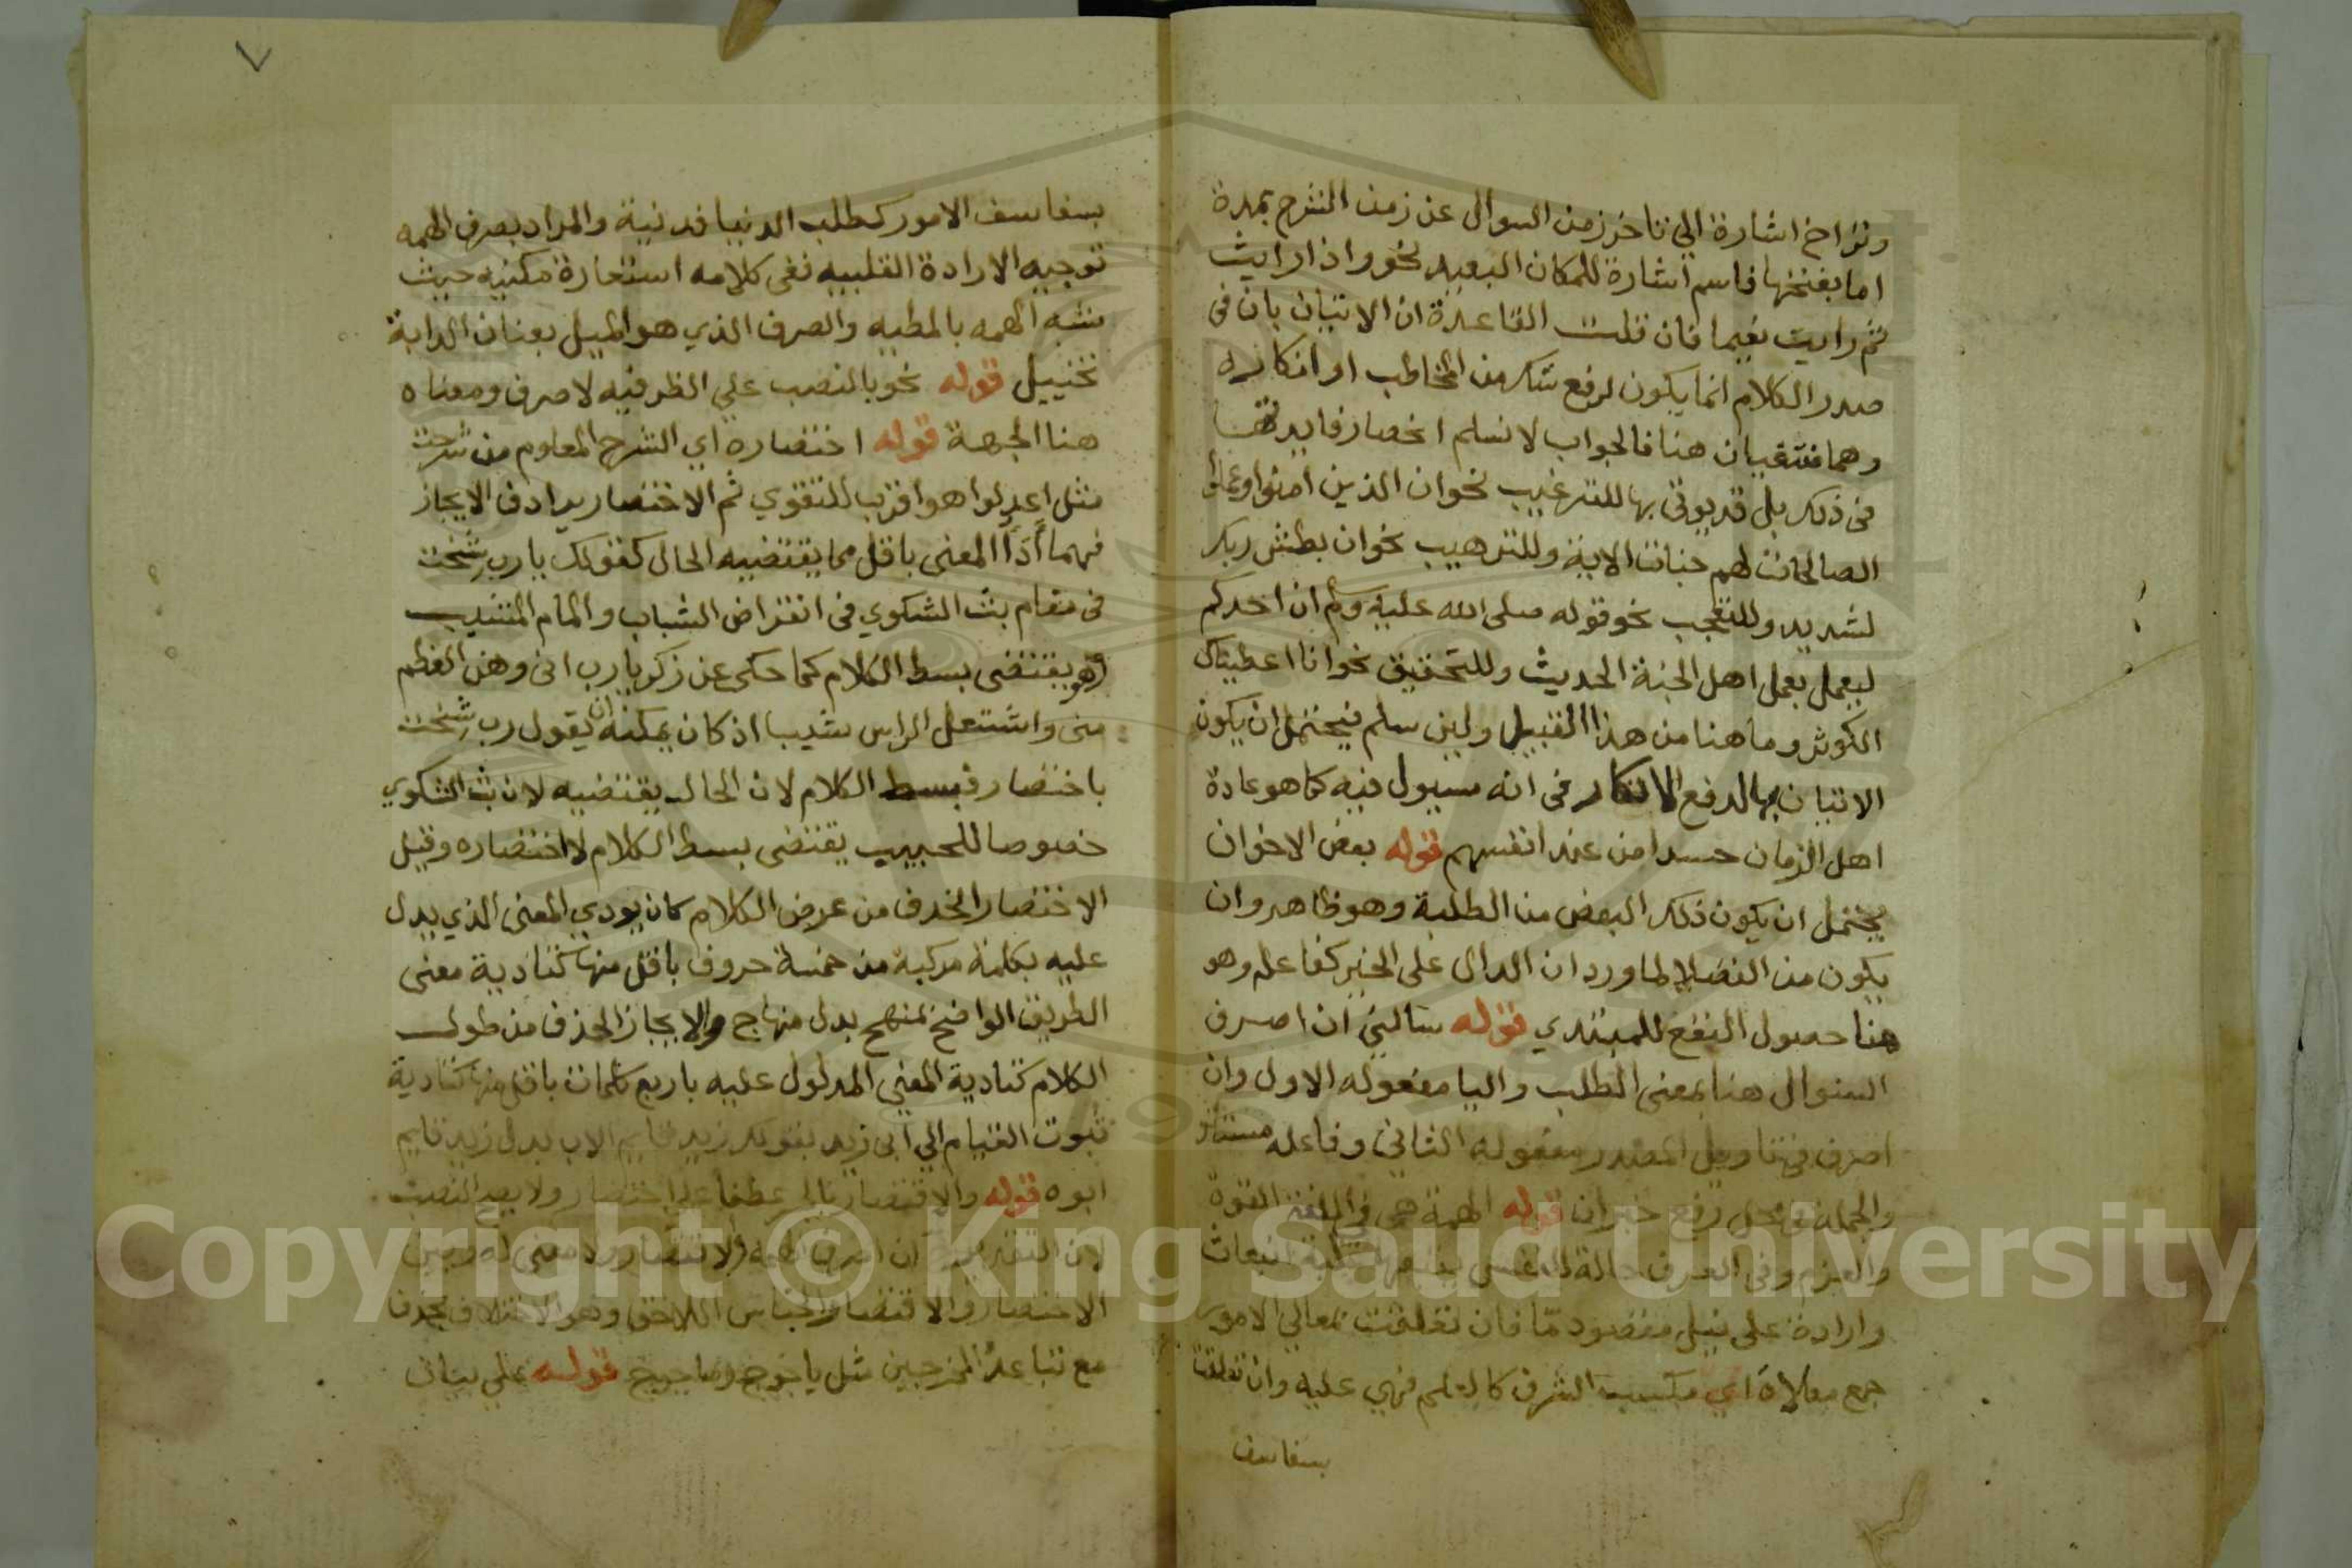 وتراخ اشارة الي تاخر زمن السوال عن زمن الشرح بمدة
اما بفتحها فاسم اشارة للمكان البعيد نحو واذا رايت
ثم رايت نعيما فان قلت القاعدة ان الاتيان بان في
صدر الكلام انما يكون لرفع شك من المخاطب او انكاره
وهما منتفيان هنا فالجواب لا نسلم انحصار فايدتها
في ذلك بل قد يوتي بها للترغيب نحو ان الذين امنوا وعملوا
الصالحات لهم جنات الاية وللترهيب نحو ان بطش ربك
لشديد وللتعجب نحو قوله صلي الله عليه وسلم ان احدكم
ليعمل بعمل اهل الجنة الحديث وللتحقيق نحو انا اعطيناك
الكوثر وما هنا من هذا القبيل ولين سلم فيحتمل ان يكون
الاتيان بها لدفع الانكار في انه مسيول فيه كما هو عادة
اهل الزمان حسدا من عند انفسهم قوله بعض الاخوان
يحتمل ان يكون ذلك البعض من الطلبة وهو ظاهر وان
يكون من الفضلا لما ورد ان الدال علي الخير كفاعله وهو
هنا حصول النفع للمبتدي قوله سالني ان اصرف
السوال هنا بمعني الطلب واليا مفعوله الاول وان
اصرف في تاويل المصدر مفعوله الثاني وفاعله مستتر
والجملة في محل رفع خبر ان قوله الهمة هي في اللغة القوة
والعزم وفي العرف حالة للنفس يتبعها غلبة انبعاث
وارادة علي نيل مقصود ما فان تعلقت بمعالي الامور
جمع معلاة اي مكسب الشرف كالعلم فهي علية وان تعلقت
بسفاسف
٧
بسفاسف الامور كطلب الدنيا فدنية والمراد بصرف الهمه
توجيه الارادة القلبيه ففي كلامه استعارة مكنيه حيث
شبه الهمه بالمطيه والصرف الذي هو الميل بعنان الدابة
تخييل قوله نحو بالنصب علي الظرفيه لاصرف ومعناه
هنا الجهة قوله اختصاره اي الشرح المعلوم من شرحت
مثل اعدلوا هو اقرب للتقوي ثم الاختصار يرادف الايجاز
فهما أدا المعني باقل مما يقتضيه الحال كقولك يا رب شخت
في مقام بث الشكوي في انقراض الشباب والمام المشيب
وهو يقتضي بسط الكلام كما حكي عن زكريا رب اني وهن العظم
مني واشتعل الراس شيبا اذ كان يمكنه ان يقول رب شخت
باختصار فبسط الكلام لان الحال يقتضيه لان بث الشكوي
خصوصا للحبيب يقتضي بسط الكلام لا اختصاره وقيل
الاختصار الحذف من عرض الكلام كان يودي المعني الذي يدل
عليه بكلمة مركبة من خمسة حروف باقل منها كتادية معني
الطريق الواضح بمنهج بدل منهاج والايجاز الحذف من طول
الكلام كتادية المعني المدلول عليه باربع كلمات باقل منها كتادية
ثبوت القيام الي ابي زيد بقولك زيد قايم الاب بدل زيد قايم
ابوه قوله والاقتصار بالجر عطفا علي اختصار ولا يصح النصب
لان التقدير ان اصرف الهمة والاقتصار ولا معني له وبين
الاختصار والاقتصار الجناس اللاحق وهو الاختلاف بحرف
مع تباعد المخرجين مثل ياجوج وماجوج قوله علي بيان